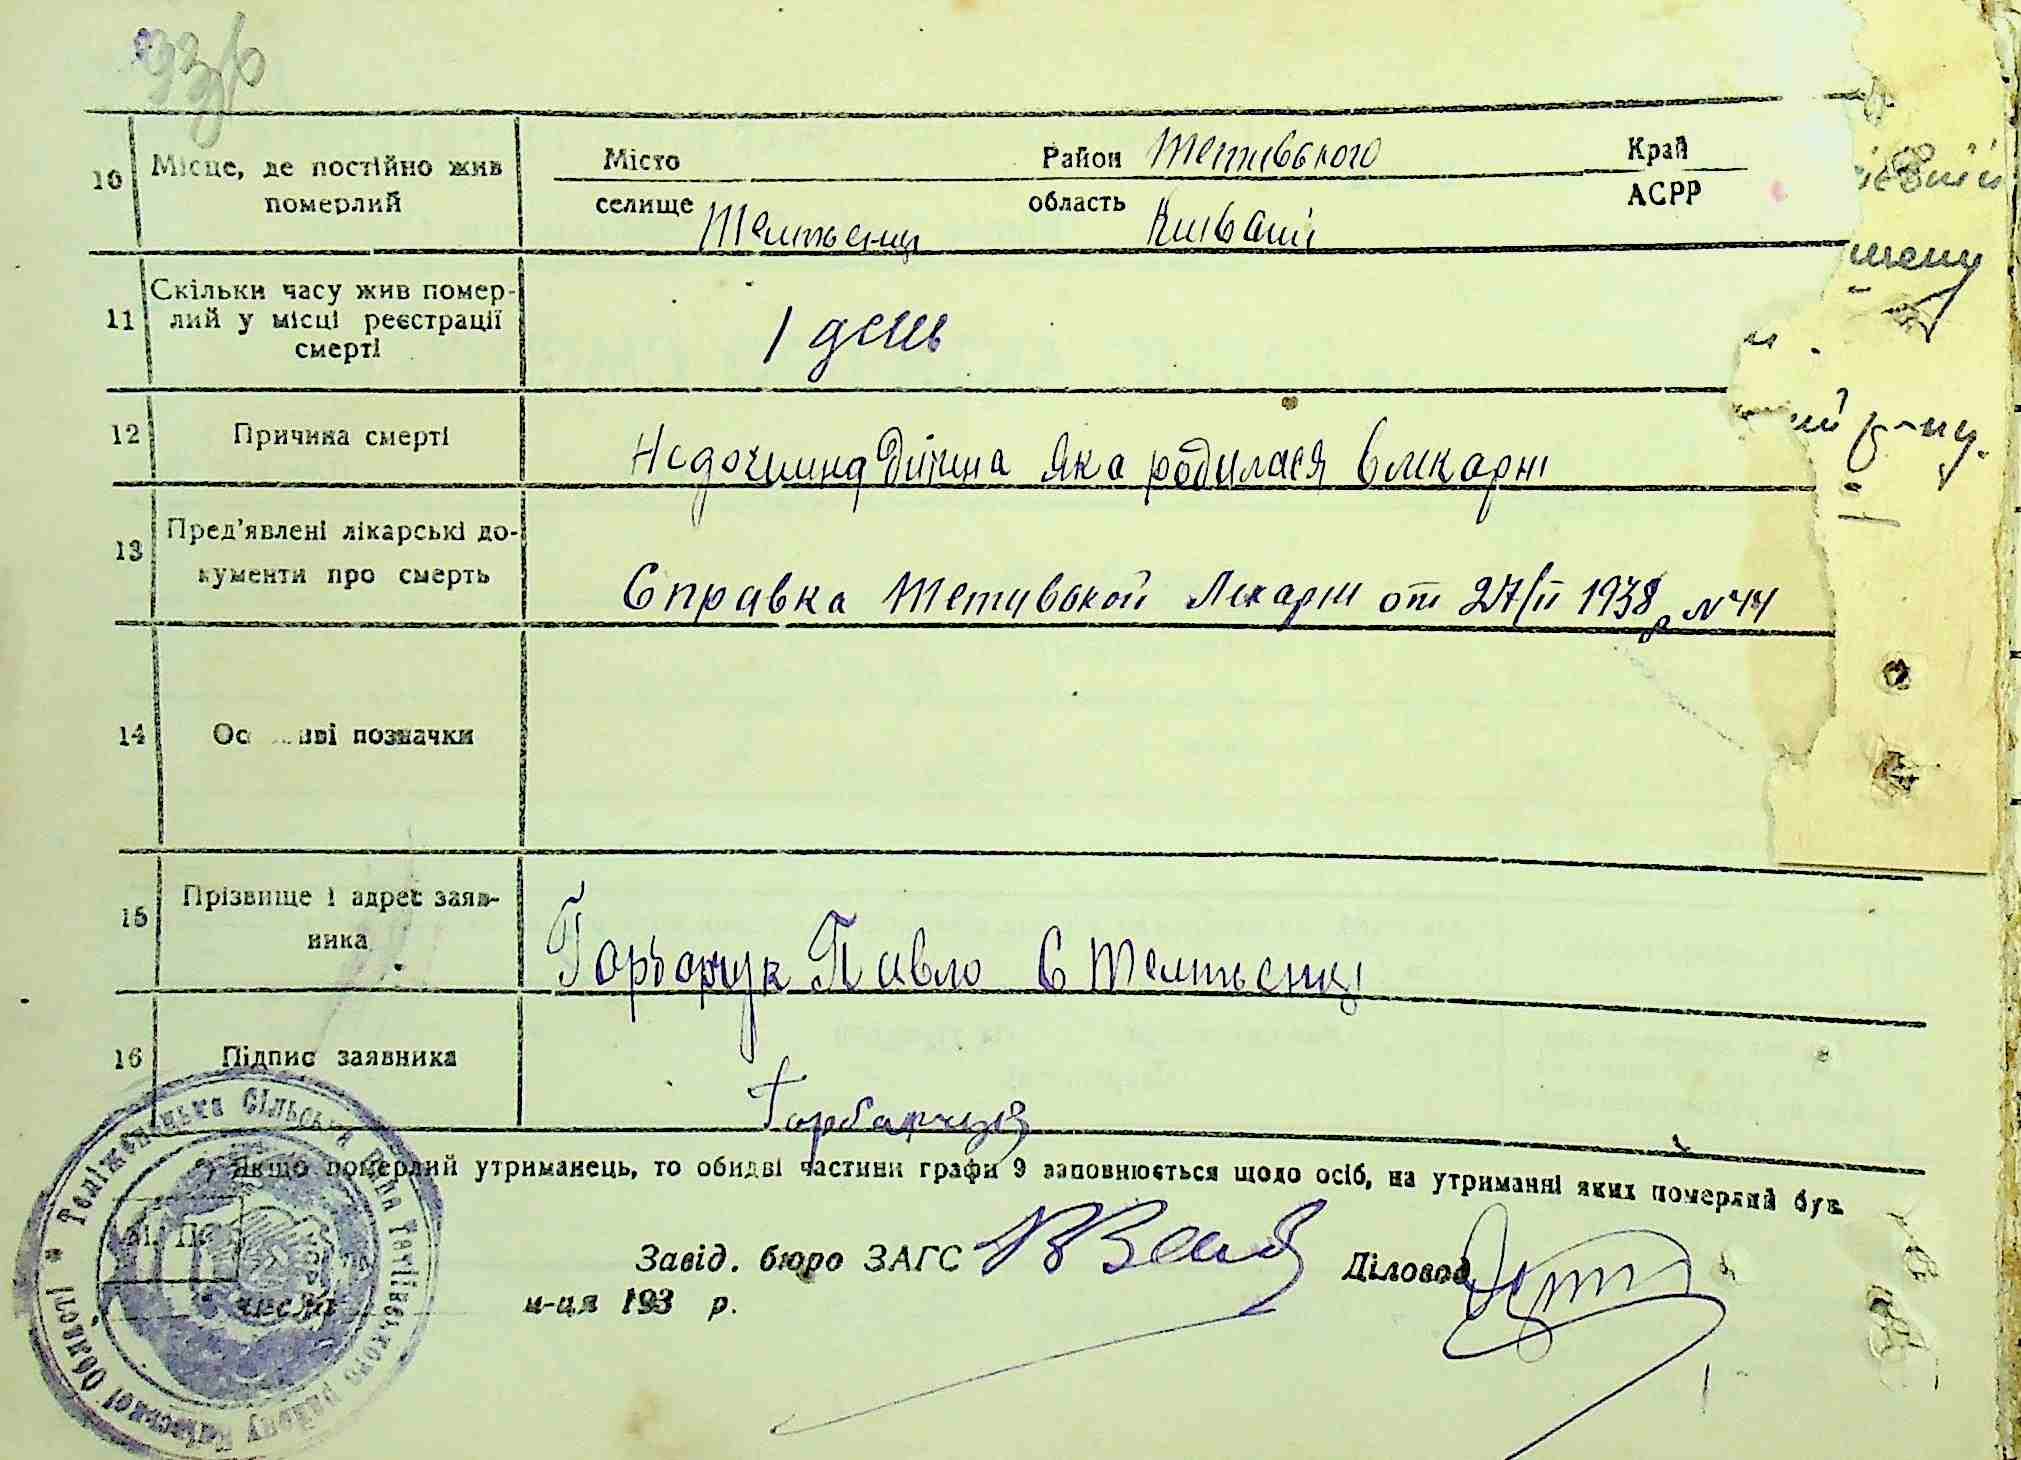 10 Місце, де постійно жив Місто Район Тетивського Край
померлий селище Телиженці область Київській АСРР
11 Скільки часу жив помер-
лий у місці реєстрації 1 день
смерті
12 Причина смерті Недочшина Дитина яка родилася в лікарні
13 Пред'явлені лікарські до-
кументи про смерть Справка Тетивской Лікарні от 27/II 1938 р №44
14 позначки
15 Прізвище і адрес заяв-
ника Горбарчук Павло С Телиженці
16 Підпис заявника Горбарчук
*) Якщо померлий утриманець, то обидві частини графи 9 заповнюється щодо осіб, на утриманні яких померлий був.
Завід. бюро ЗАГС Діловод
М. П.
число м-ця 193 р.
Теліженецька Сільська Рада Тетіївського району Київської Області